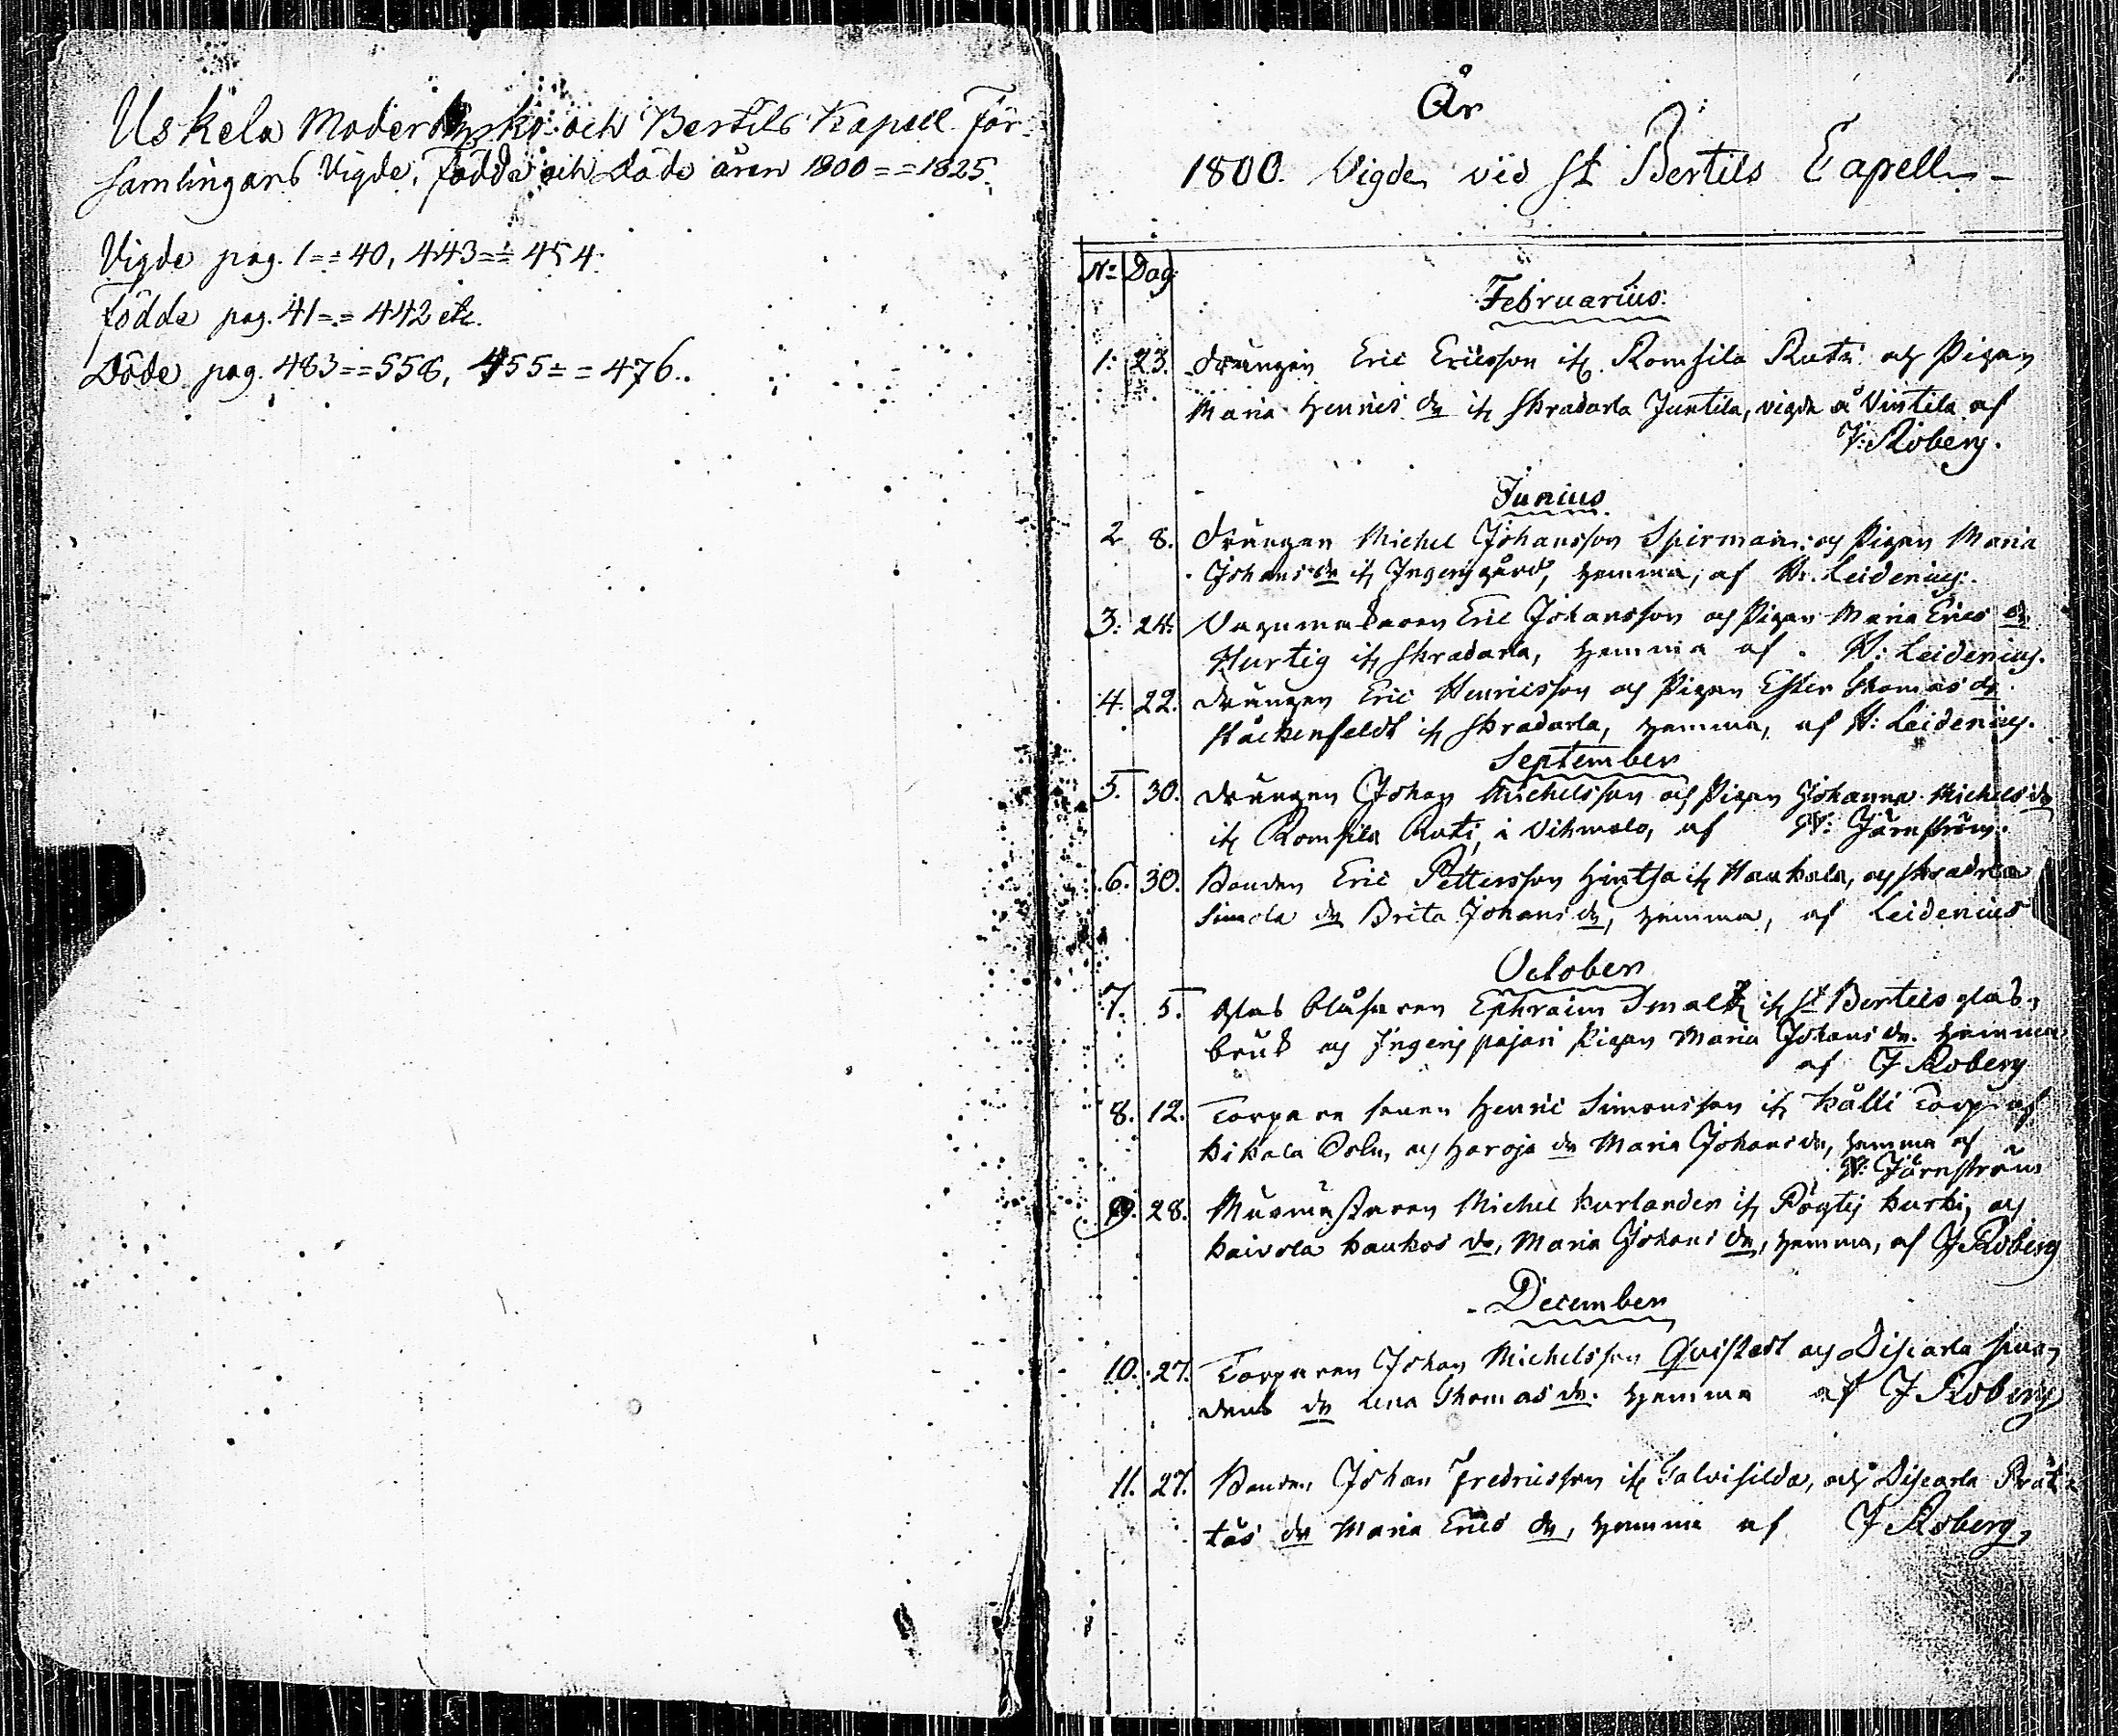 Uskela Moderkyrko och Bertils Kapell För-
samlingars Vigde, Födda och Döde åren 1800==1825.
Vigde pag. 1==40, 443==454.
Födda pag. 41==442 etc.
Döde pag. 483==558, 455==476.
År
1800. Vigde vid St Bertils Capell
No Dag
Februarius.
1. 23. Drängen Eric Ericsson ifr. Romsila Ruti och Pigan
Maria Henrics dr ifr Skradarla Juntila, vigde å Vintila af
J: Roberg.
Junius.
2 8. Drängen Michel Johansson Spirman och Pigan Maria
Johans dr ifr Ingersgård, hemma, af H: Leidenius.
3. 24. Vagnmakaren Eric Johansson och Pigan Maria Erics dr
Hurtig ifr Skradarla, hemma af H: Leidenius.
4. 22. Drängen Eric Henricsson och Pigan Ester Thomas dr
ifr Skradarla, hemma, af H: Leidenius.
September
5. 30. Drängen Johan Michelsson och Pigan Johanna Michels dr
ifr Romsila Ruti, i Vihmalo, af N: Järnström.
6. 30. Bonden Eric Pettersson Hintsa ifr Haukala, och
Simola dr Brita Johans dr, hemma, af Leidenius
October
7. 5. Glas blåsaren Ephraim Smalt ifr St Bertils glas-
bruk och Ingers pajari Pigan Maria Johans dr. hemma
af J Roberg
8. 12. Torpare sonen Henric Simonsson ifr Kålli Torp af
Kikala Soln, och Haroja dr Maria Johans dr, hemma af
N: Järnström
9. 28. Murmästaren Michel Kurlander ifr Pögtis Kurki, och
Kaivola Kaukos dr, Maria Johans dr, hemma, af J Roberg
December
10. 27. Torparen Johan Michelsson Qvistert och Disearla
dr Lena Thomas dr. hemma af J Roberg
11. 27. Bonden Johan Fredricsson ifr Talvisilda, och Disearla Prät-
täs dr Maria Erics dr, hemma af J Roberg,